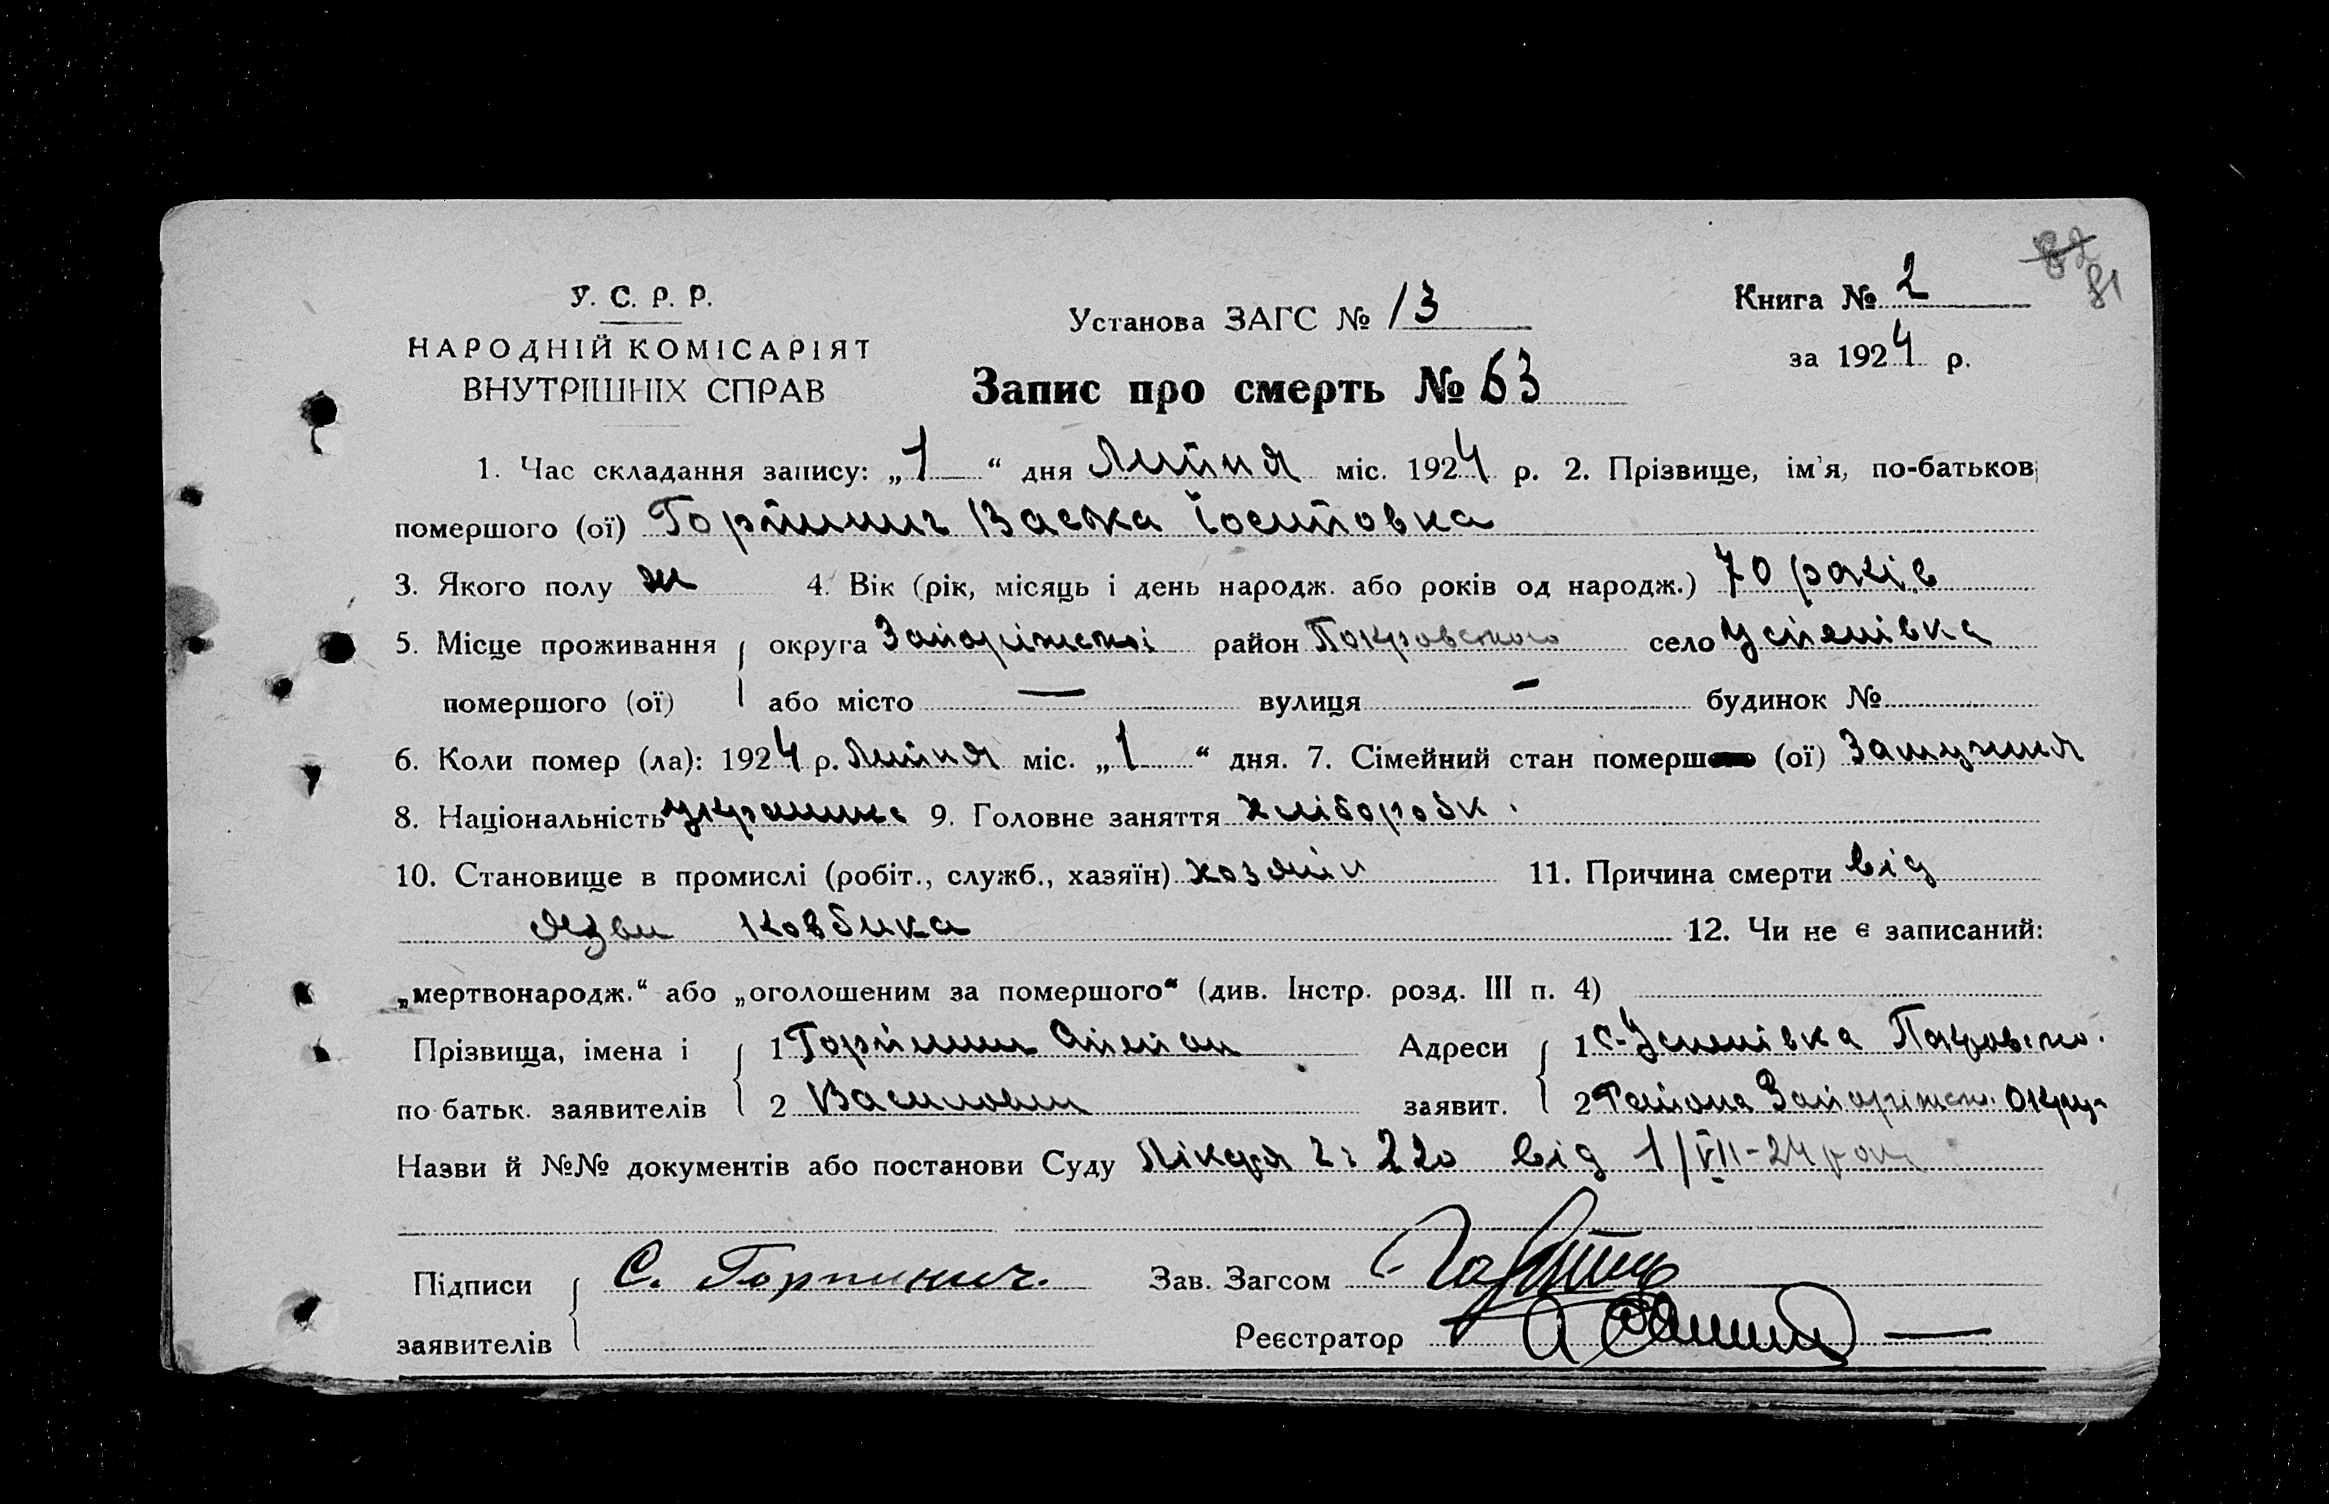 82 81
У. С. Р. Р.
НАРОДНІЙ КОМІСАРІЯТ
ВНУТРІШНІХ СПРАВ
Установа ЗАГС № 13
Книга № 2
за 1924 р.
Запис про смерть № 63
1. Час складання запису: „1“ дня Липня міс. 1924 р. 2. Прізвище, ім'я, по-батькові
помершого (ої) Горпинич Васка Іосиповка
3. Якого полу ж 4. Вік (рік, місяць і день народж. або років од народж.) 70 років
5. Місце проживання округа Запоріжської район Покровського село Успенівка
помершого (ої) або місто — вулиця - будинок №
6. Коли помер (ла): 1924 р. Липня міс. „1“ дня. 7. Сімейний стан померш (ої) Замужня
8. Національність украинка 9. Головне заняття хлібороб
10. Становище в промислі (робіт., служб., хазяїн) хозяїн 11. Причина смерти від
язви 12. Чи не є записаний:
„мертвонародж.“ або „оголошеним за помершого“ (див. Інстр. розд. III п. 4)
Прізвища, імена і 1 Горпинич Адреси 1 с. Успенівка Покровсько.
по батьк. заявителів 2 Василович заявит. 2 Района Запоріжськ. Окру.
Назви й №№ документів або постанови Суду Лікаря 220 від 1/VII-24 року
Підписи С. Горпинич. Зав. Загсом
заявителів Реєстратор